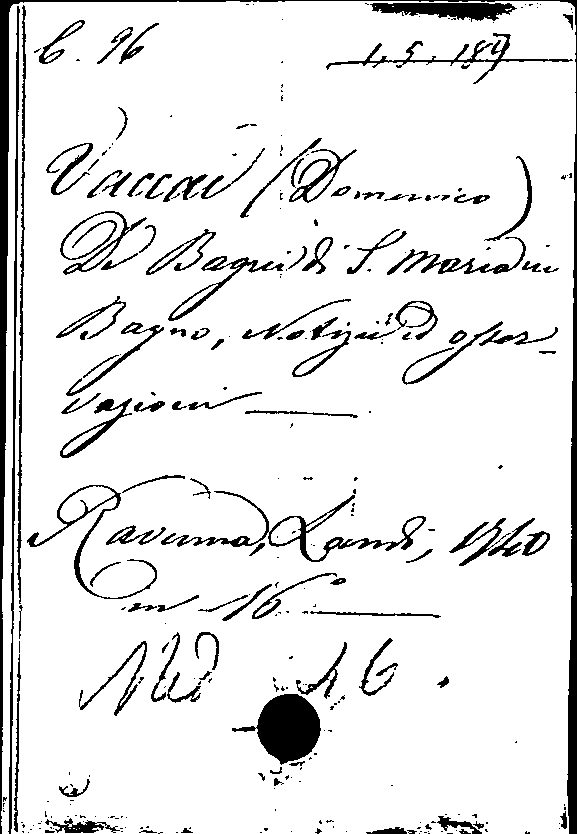 C. 96 1.5.189
Vaccai (Domenico)
De Bagni di S. Maria in
Bagno, Notizie ed osser-
vazioni
Ravenna, Landi, 1740
in 16°
Med